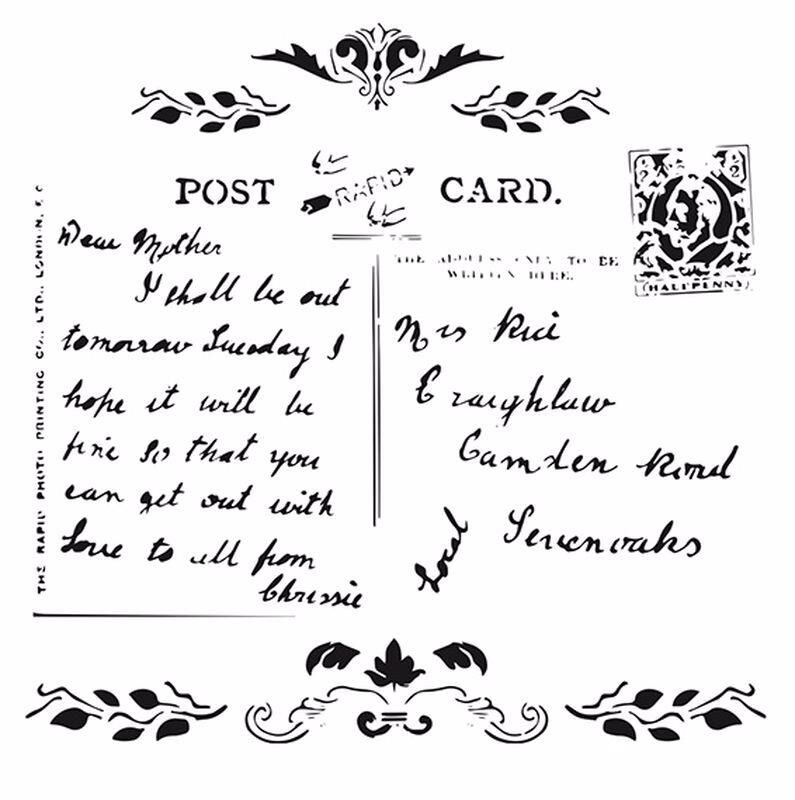 POST RAPID CARD.
1/2 1/2
HALFPENNY
THE ADDRESS ONLY TO BE
WRITTEN HERE.
THE RAPID PHOTO PRINTING CO., LTD., LONDON, E.C
Dear Mother
I shall be out
tomorrow Tuesday I
hope it will be
fine so that you
can get out with
Love to all from
Chrissie
Mrs Rice
Craighlaw
Camden Road
Sevenoaks
Local